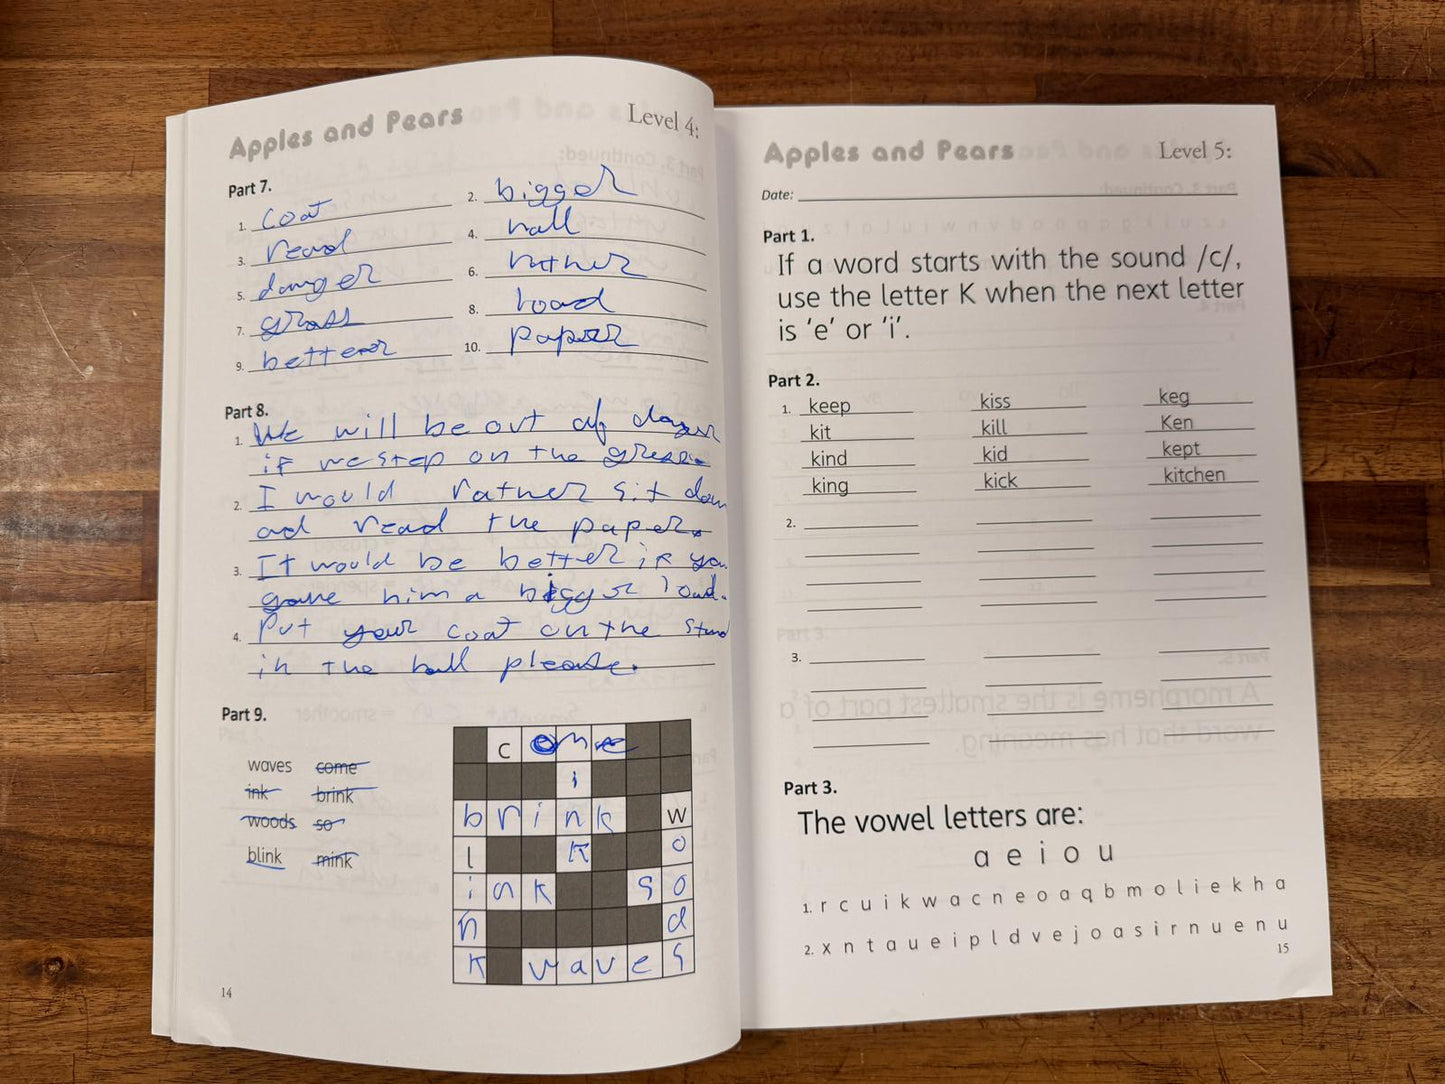 Apples and Pears
Level 4:
Part 7.
1. coat
2. bigger
3. read
4. hall
5. danger
6. rather
7. grass
8. load
9. better
10. paper
Part 8.
1. We will be out of danger
if we step on the grass.
2. I would rather sit down
ad read the paper.
3. It would be better if you
gave him a bigger load.
4. Put your coat on the stand
in the hall please.
Part 9.
waves come
ink brink
woods so
blink mink
c o m e
i
b r i n k w
l k o
i n k s o
n d
k w a v e s
14
Apples and Pears
Level 5:
Date:
Part 1.
If a word starts with the sound /c/,
use the letter K when the next letter
is 'e' or 'i'.
Part 2.
1. keep kiss keg
kit kill Ken
kind kid kept
king kick kitchen
2.
3.
Part 3.
The vowel letters are:
a e i o u
1. r c u i k w a c n e o a q b m o l i e k h a
2. x n t a u e i p l d v e j o a s i r n u e n u
15